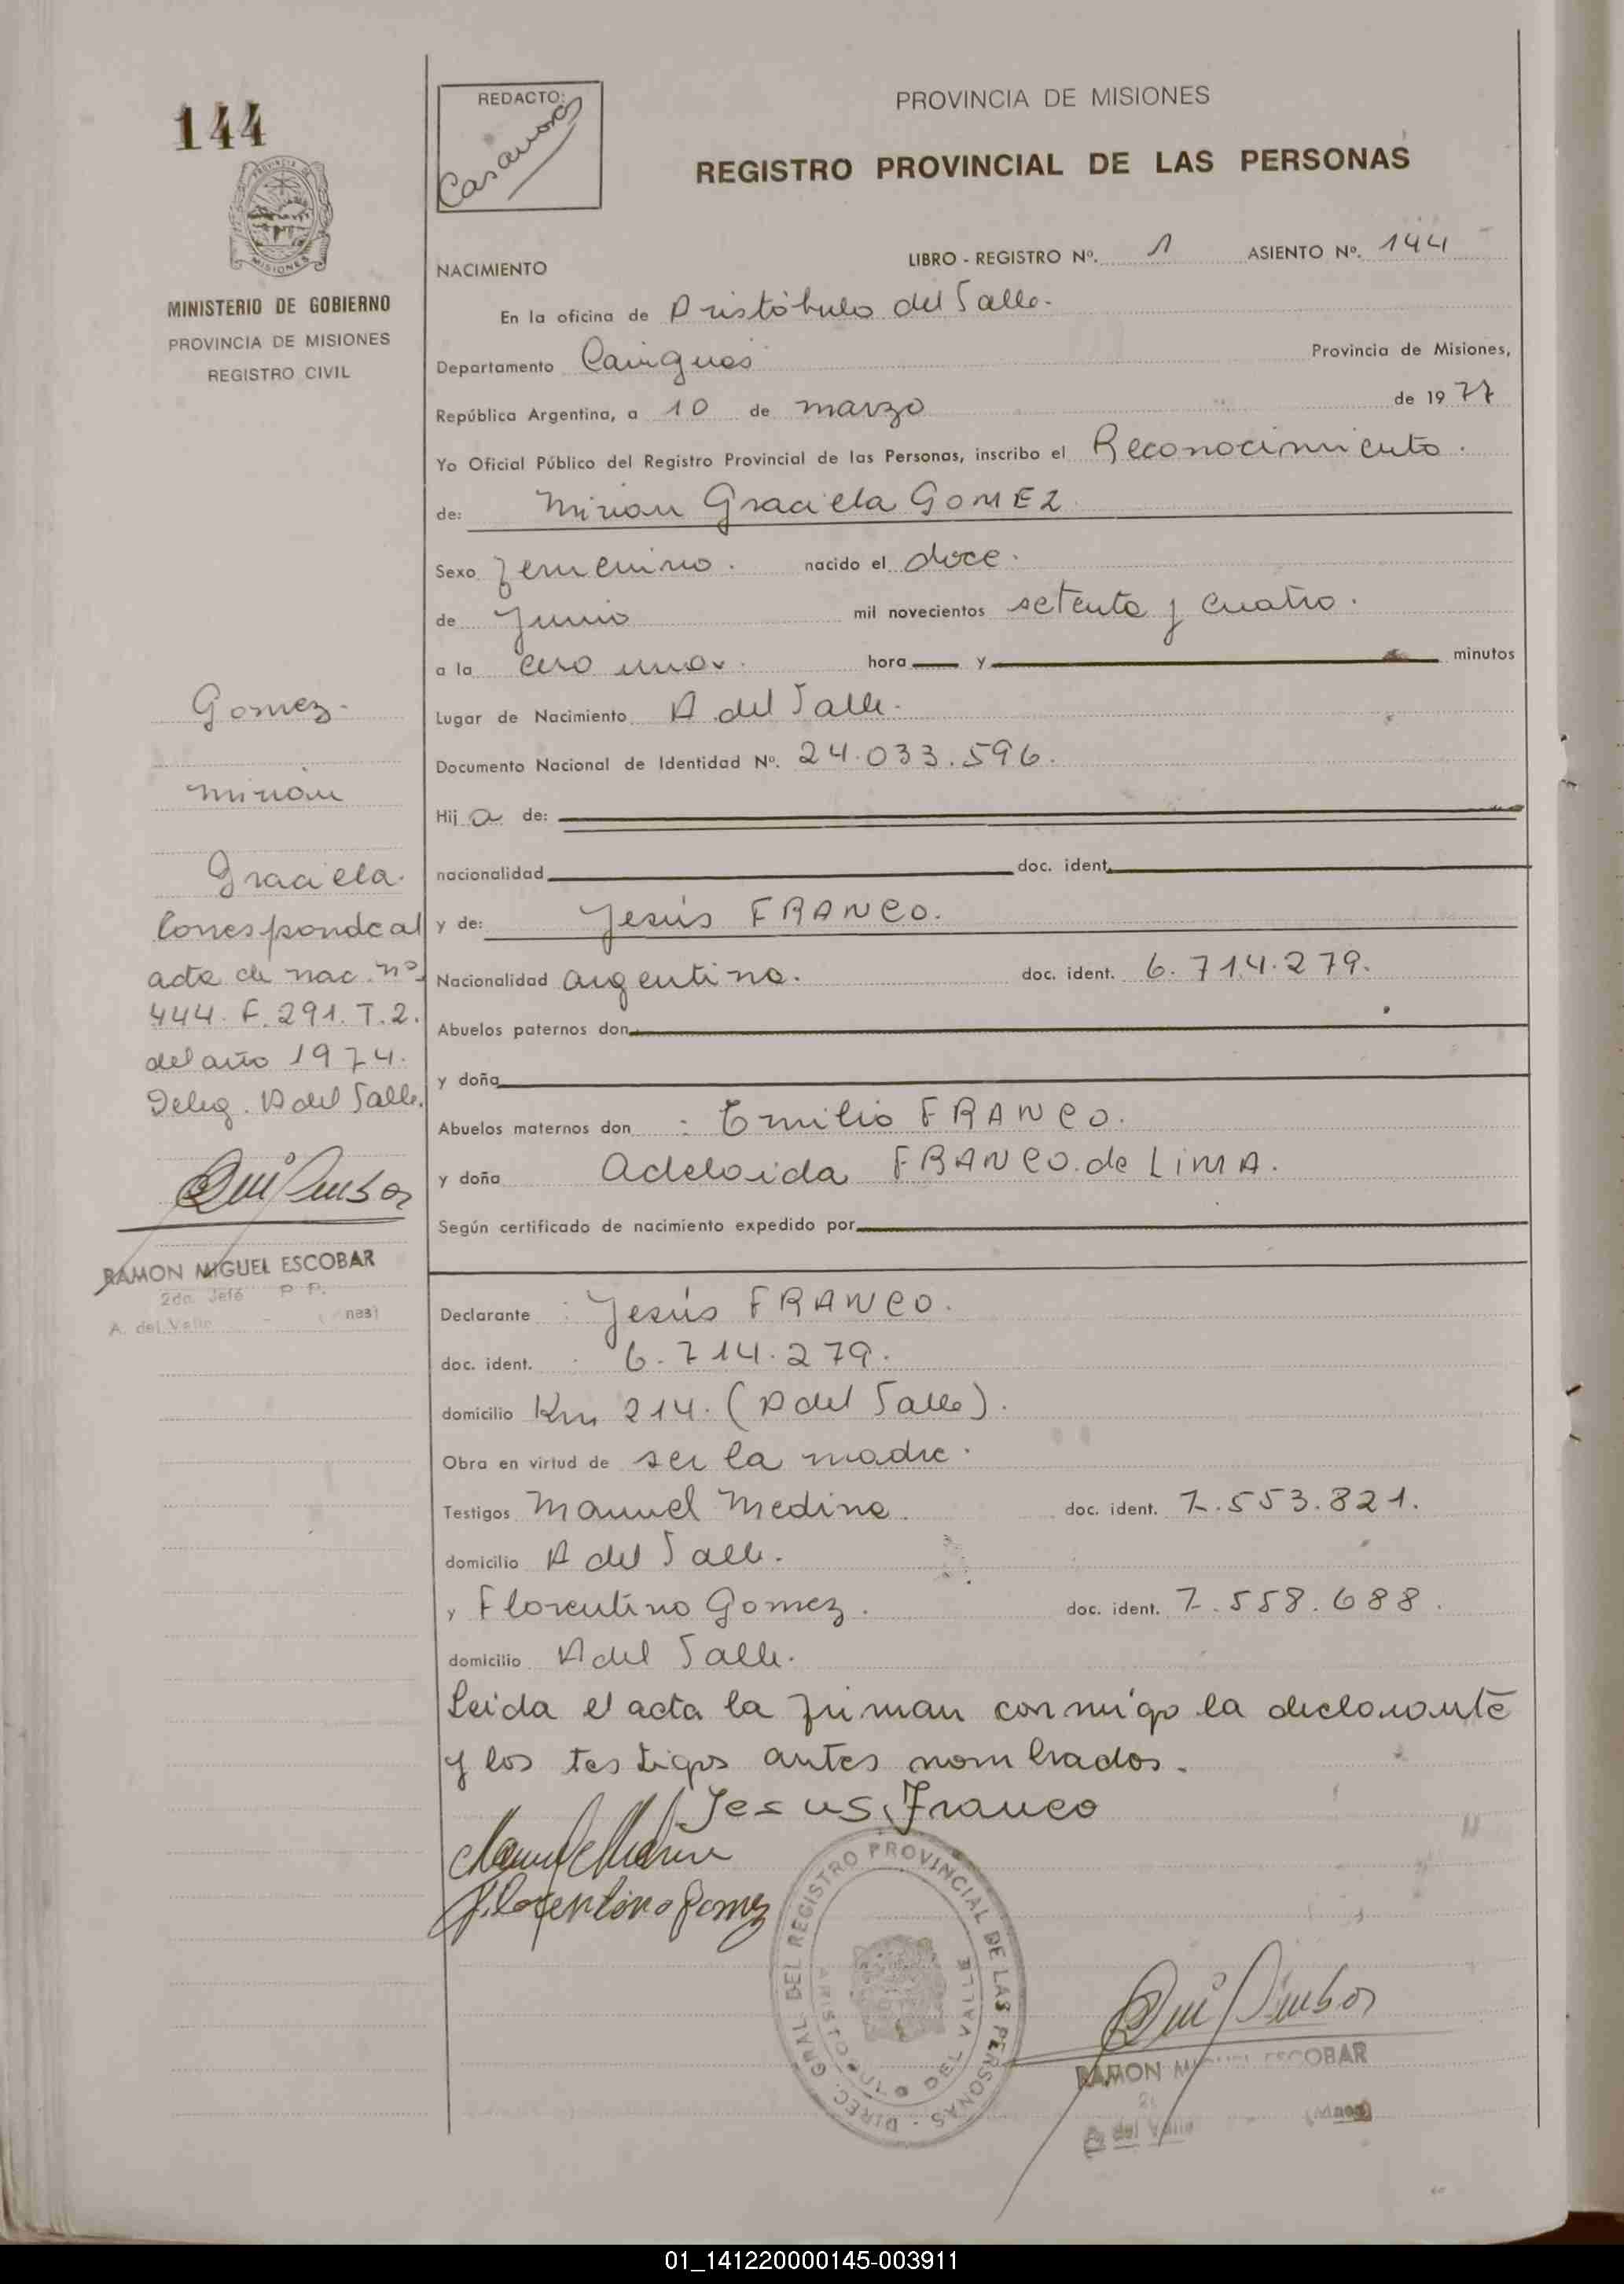 144
PROVINCIA
MISIONES
MINISTERIO DE GOBIERNO
PROVINCIA DE MISIONES
REGISTRO CIVIL
REDACTO:
Casanova
PROVINCIA DE MISIONES
REGISTRO PROVINCIAL DE LAS PERSONAS
NACIMIENTO LIBRO - REGISTRO Nº. 1 ASIENTO Nº. 144
En la oficina de Aristóbulo del Valle.
Departamento Cainguas Provincia de Misiones,
República Argentina, a 10 de marzo de 1977
Yo Oficial Público del Registro Provincial de las Personas, inscribo el Reconocimiento.
de: Mirian Graciela GOMEZ
Sexo femenino. nacido el doce.
de Junio mil novecientos setenta y cuatro.
a la cero una. hora y minutos
Lugar de Nacimiento A del Valle.
Documento Nacional de Identidad Nº. 24.033.596.
Hij a de:
nacionalidad doc. ident.
y de: Jesús FRANCO.
Nacionalidad argentina. doc. ident. 6.714.279.
Abuelos paternos don
y doña
Abuelos maternos don : Emilio FRANCO.
y doña Adeloida FRANCO de LIMA.
Según certificado de nacimiento expedido por
Gomez.
Mirian
Graciela.
Corresponde al
acta de nac. nº
444. F. 291. T. 2.
del año 1974.
Deleg. A del Valle.
RAMON MIGUEL ESCOBAR
2do. Jefe
A. del Valle
Declarante : Jesús FRANCO.
doc. ident. 6.714.279.
domicilio Km 214. (A del Valle).
Obra en virtud de ser la madre.
Testigos Manuel Medina. doc. ident. 7.553.821.
domicilio A del Valle.
y Florentino Gomez. doc. ident. 7.558.688.
domicilio A del Valle.
Leida el acta la firman conmigo la declarante
y los testigos antes nombrados.
Jesus Franco
Manuel Medina
Florentino Gomez
DIREC. GRAL. DEL REGISTRO PROVINCIAL DE LAS PERSONAS
ARISTOBULO DEL VALLE
RAMON MIGUEL ESCOBAR
A del Valle
01_141220000145-003911